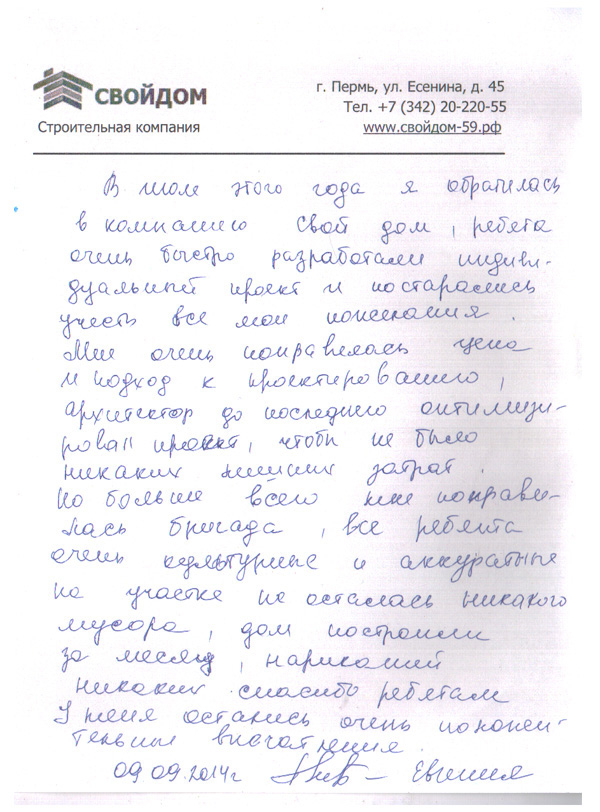 СВОЙДОМ
Строительная компания
г. Пермь, ул. Есенина, д. 45
Тел. +7 (342) 20-220-55
www.свойдом-59.рф
В июле этого года я обратилась
в компанию Свой дом, ребята
очень быстро разработали индиви-
дуальный проект и постарались
учесть все мои пожелания.
Мне очень понравилась цена
и подход к проектированию,
архитектор до последнего оптимизи-
ровал проект, чтобы не было
никаких лишних затрат.
Но больше всего мне понрави-
лась бригада, все ребята
очень культурные и аккуратные
на участке не осталась никакого
мусора, дом построили
за месяц, нариканий
никаких спасибо ребятам
У меня остались очень положи-
тельные впечатления.
09.09.2014г Евгения